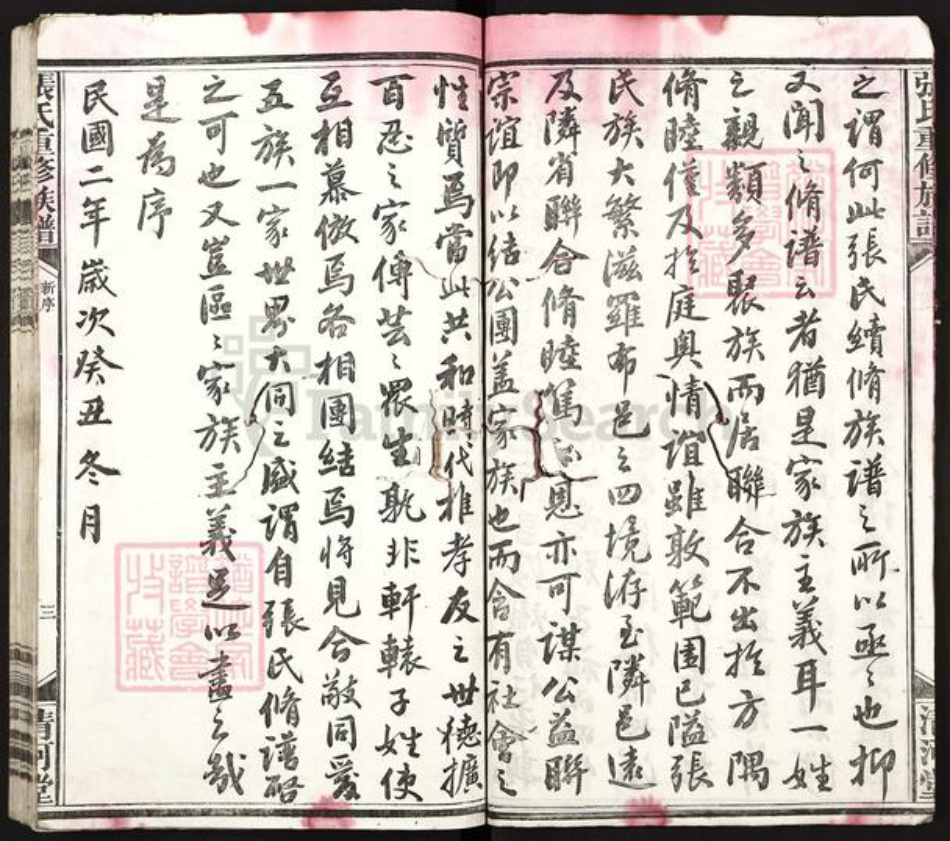 張氏重修族譜
清河堂
之謂何此張氏續脩族譜之所以亟亟也抑
又聞之脩譜云者猶是家族主義耳一姓
之親類多聚族而居聯合不出於方隅
脩睦僅及於庭奥情誼雖敦範圍已隘張
民族大繁滋羅布邑之四境洊至隣邑遠
及隣省聯合脩睦篤恩亦可謀公益聯
宗誼即以結公團盖家族也而含有社會之
性質焉當此共和時代推孝友之世德擴
百忍之家傳芸芸眾生孰非軒轅子姓使
互相慕倣焉各相團結焉將見合敵同愛
五族一家世界大同之盛謂自張氏脩譜啓
之可也又豈區區家族主義足以盡之哉
是為序
民國二年歲次癸丑冬月
張氏重修族譜
新序
三
清河堂
譜學會
收藏
FamilySearch